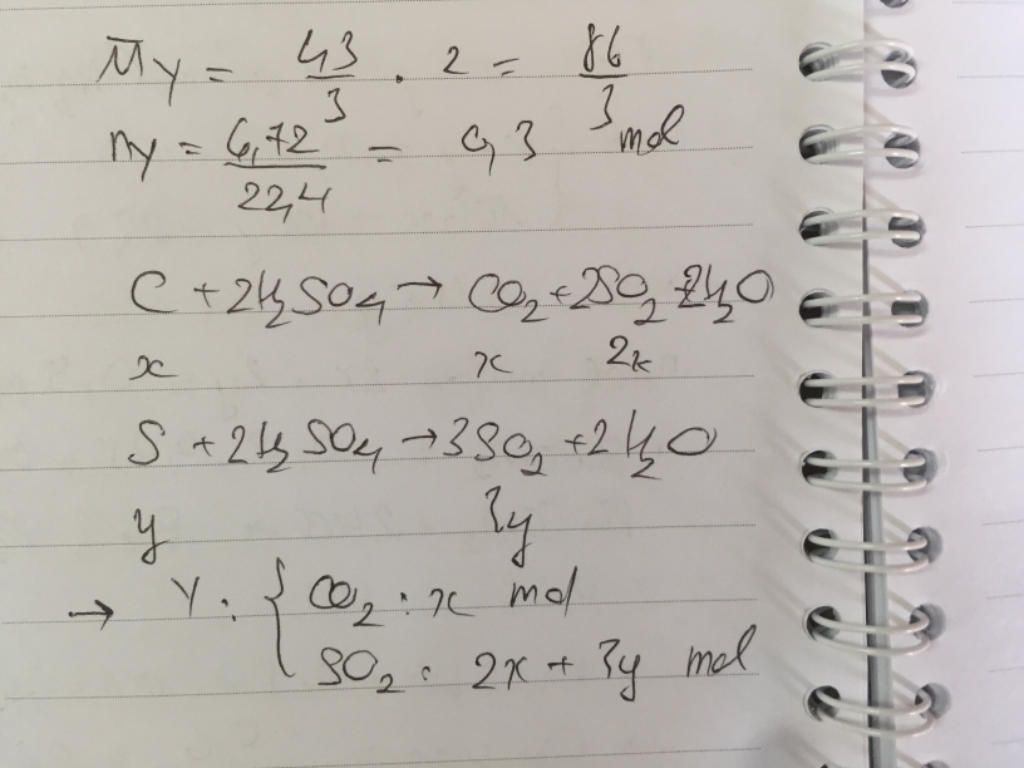 M̅y = 43/3 . 2 = 86/3
ny = 6,72/22,4 = 0,3 mol
C + 2H₂SO₄ → CO₂ + 2SO₂ + 2H₂O
x x 2x
S + 2H₂SO₄ → 3SO₂ + 2H₂O
y 3y
→ Y : { CO₂ : x mol
SO₂ : 2x + 3y mol